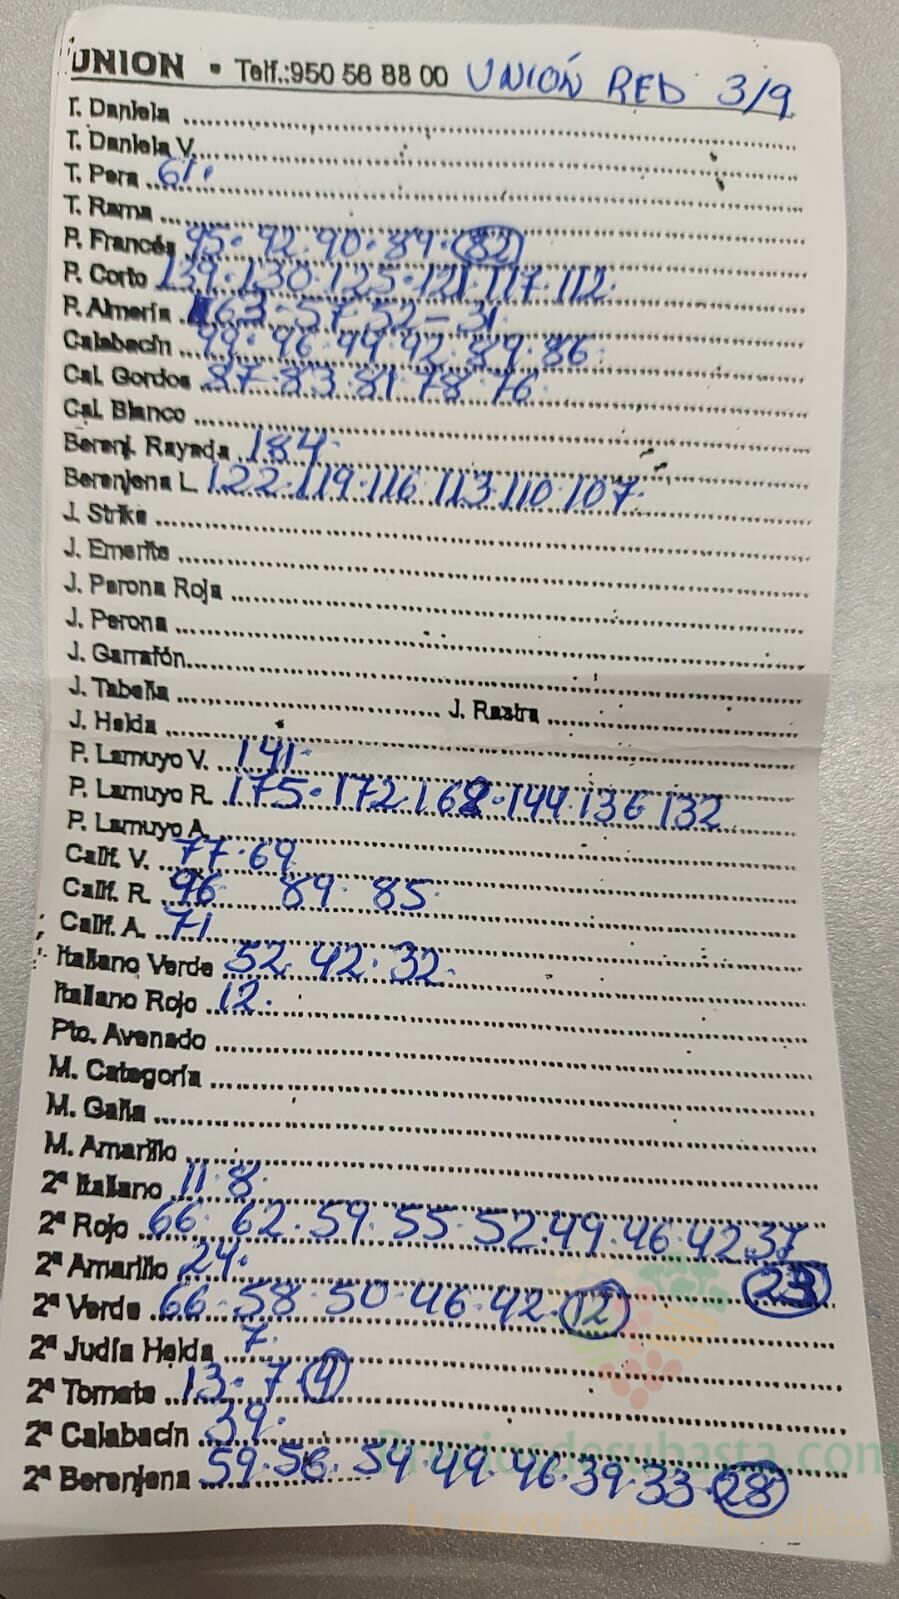 UNION • Telf.:950 56 88 00 UNIÓN RED 3/9
T. Daniela
T. Daniela V.
T. Pera 61.
T. Rama
P. Francés 95. 92. 90. 84. (82)
P. Corto 139. 130. 125. 121. 117. 112.
P. Almería 63-57-52-31.
Calabacín 99. 96. 94. 92. 89. 86.
Cal. Gordos 87. 83. 81. 78. 76.
Cal. Blanco
Berenj. Rayada 184.
Berenjena L. 122. 119. 116 113. 110. 107.
J. Strike
J. Emerite
J. Perona Roja
J. Perona
J. Garrafón
J. Tabella J. Rastra
J. Helda
P. Lamuyo V. 141.
P. Lamuyo R. 175. 172. 168. 144. 136 132
P. Lamuyo A.
Calif. V. 77. 69
Calif. R. 96 89. 85.
Calif. A. 71
Italiano Verde 52. 42. 32.
Italiano Rojo 12.
Pto. Avenado
M. Categoría
M. Galia
M. Amarillo
2ª Italiano 11. 8.
2ª Rojo 66. 62. 59. 55. 52. 49. 46. 42. 37
(23)
2ª Amarillo 24.
2ª Verde 66. 58. 50. 46. 42. (12)
2ª Judía Helda 7.
2ª Tomate 13. 7 (4)
2ª Calabacín 39.
2ª Berenjena 59. 56. 54. 49. 46. 39. 33. (28)
Preciosdesubasta.com
La mayor web de hortalizas